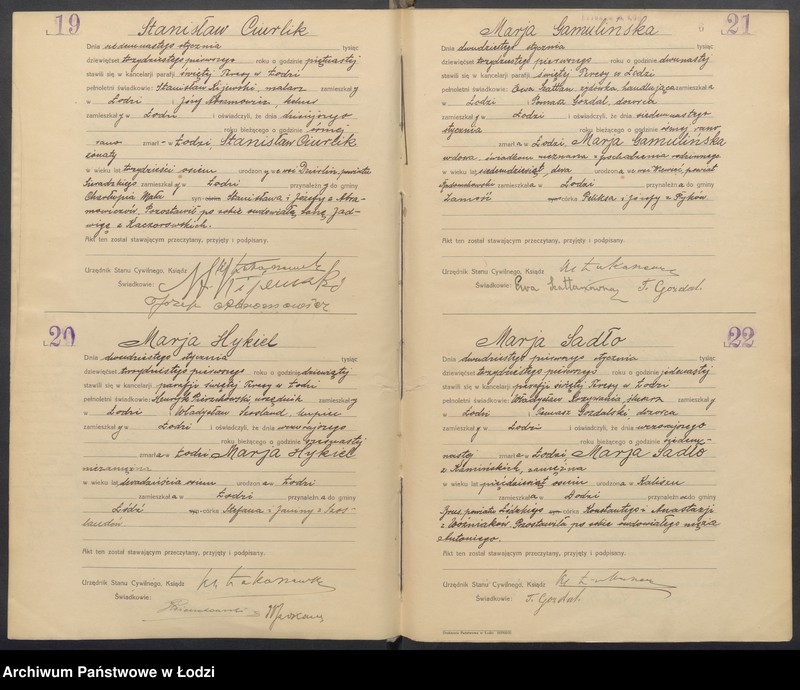 19
Stanisław Ciurlik
Dnia siedemnastego stycznia tysiąc
dziewięćset trzydziestego pierwszego roku o godzinie piętnastej
stawili się w kancelarji parafji świętej Teresy w Łodzi
pełnoletni świadkowie: Stanisław malarz zamieszkały
w Łodzi i Józef Abramowicz,
zamieszkały w Łodzi i oświadczyli, że dnia dzisiejszego
roku bieżącego o godzinie ósmej
rano zmarł w Łodzi, Stanisław Ciurlik
żonaty
w wieku lat trzydzieści osiem urodzony we wsi powiatu
Sieradzkiego zamieszkały w Łodzi przynależny do gminy
Mała syn Stanisława i Józefy z Abra-
mowiczów. Pozostawił po sobie owdowiałą żonę Jad-
wigę z Kaczorowskich.
Akt ten został stawającym przeczytany, przyjęty i podpisany.
Urzędnik Stanu Cywilnego, Ksiądz
Świadkowie:
Józef Abramowicz
20
Marja Hykiel
Dnia dwudziestego stycznia tysiąc
dziewięćset trzydziestego pierwszego roku o godzinie dziewiątej
stawili się w kancelarji parafji świętej Teresy w Łodzi
pełnoletni świadkowie: Henryk urzędnik zamieszkały
w Łodzi Władysław kupiec
zamieszkały w Łodzi i oświadczyli, że dnia wczorajszego
roku bieżącego o godzinie
zmarła w Łodzi Marja Hykiel
niezamężna
w wieku lat dwadzieścia osiem urodzona w Łodzi
zamieszkała w Łodzi przynależna do gminy
Łódź córka Stefana i Janiny z

Akt ten został stawającym przeczytany, przyjęty i podpisany.
Urzędnik Stanu Cywilnego, Ksiądz
Świadkowie:
6
21
Marja Gamulińska
Dnia dwudziestego stycznia tysiąc
dziewięćset trzydziestego pierwszego roku o godzinie dwunastej
stawili się w kancelarji parafji świętej Teresy w Łodzi
pełnoletni świadkowie: Ewa handlująca zamieszkała
w Łodzi i Tomasz Gozdal, dozorca
zamieszkały w Łodzi i oświadczyli, że dnia siedemnastego
stycznia roku bieżącego o godzinie ósmej rano
zmarła w Łodzi, Marja Gamulińska
wdowa, świadkom nieznana z pochodzenia rodzinnego
w wieku lat siedemdziesiąt dwa urodzona we wsi powiat
Radomskowski zamieszkała w Łodzi przynależna do gminy
Zamość córka Feliksa i Józefy z
Akt ten został stawającym przeczytany, przyjęty i podpisany.
Urzędnik Stanu Cywilnego, Ksiądz
Świadkowie: Ewa T. Gozdal.
22
Marja Sadło
Dnia dwudziestego pierwszego stycznia tysiąc
dziewięćset trzydziestego pierwszego roku o godzinie jedenastej
stawili się w kancelarji parafji świętej Teresy w Łodzi
pełnoletni świadkowie: Władysław zamieszkały
w Łodzi i Tomasz Gozdalski dozorca
zamieszkały w Łodzi i oświadczyli, że dnia wczorajszego
roku bieżącego o godzinie siedem-
nastej zmarła w Łodzi, Marja Sadło
z Kamińskich, zamężna
w wieku lat pięćdziesiąt osiem urodzona w Kaliszu
zamieszkała w Łodzi przynależna do gminy
Brus, powiatu Łódzkiego córka Konstantego i Anastazji
z Woźniaków. Pozostawiła po sobie owdowiałego męża
Antoniego.
Akt ten został stawającym przeczytany, przyjęty i podpisany.
Urzędnik Stanu Cywilnego, Ksiądz
Świadkowie: T. Gozdal.
Archiwum Państwowe w Łodzi